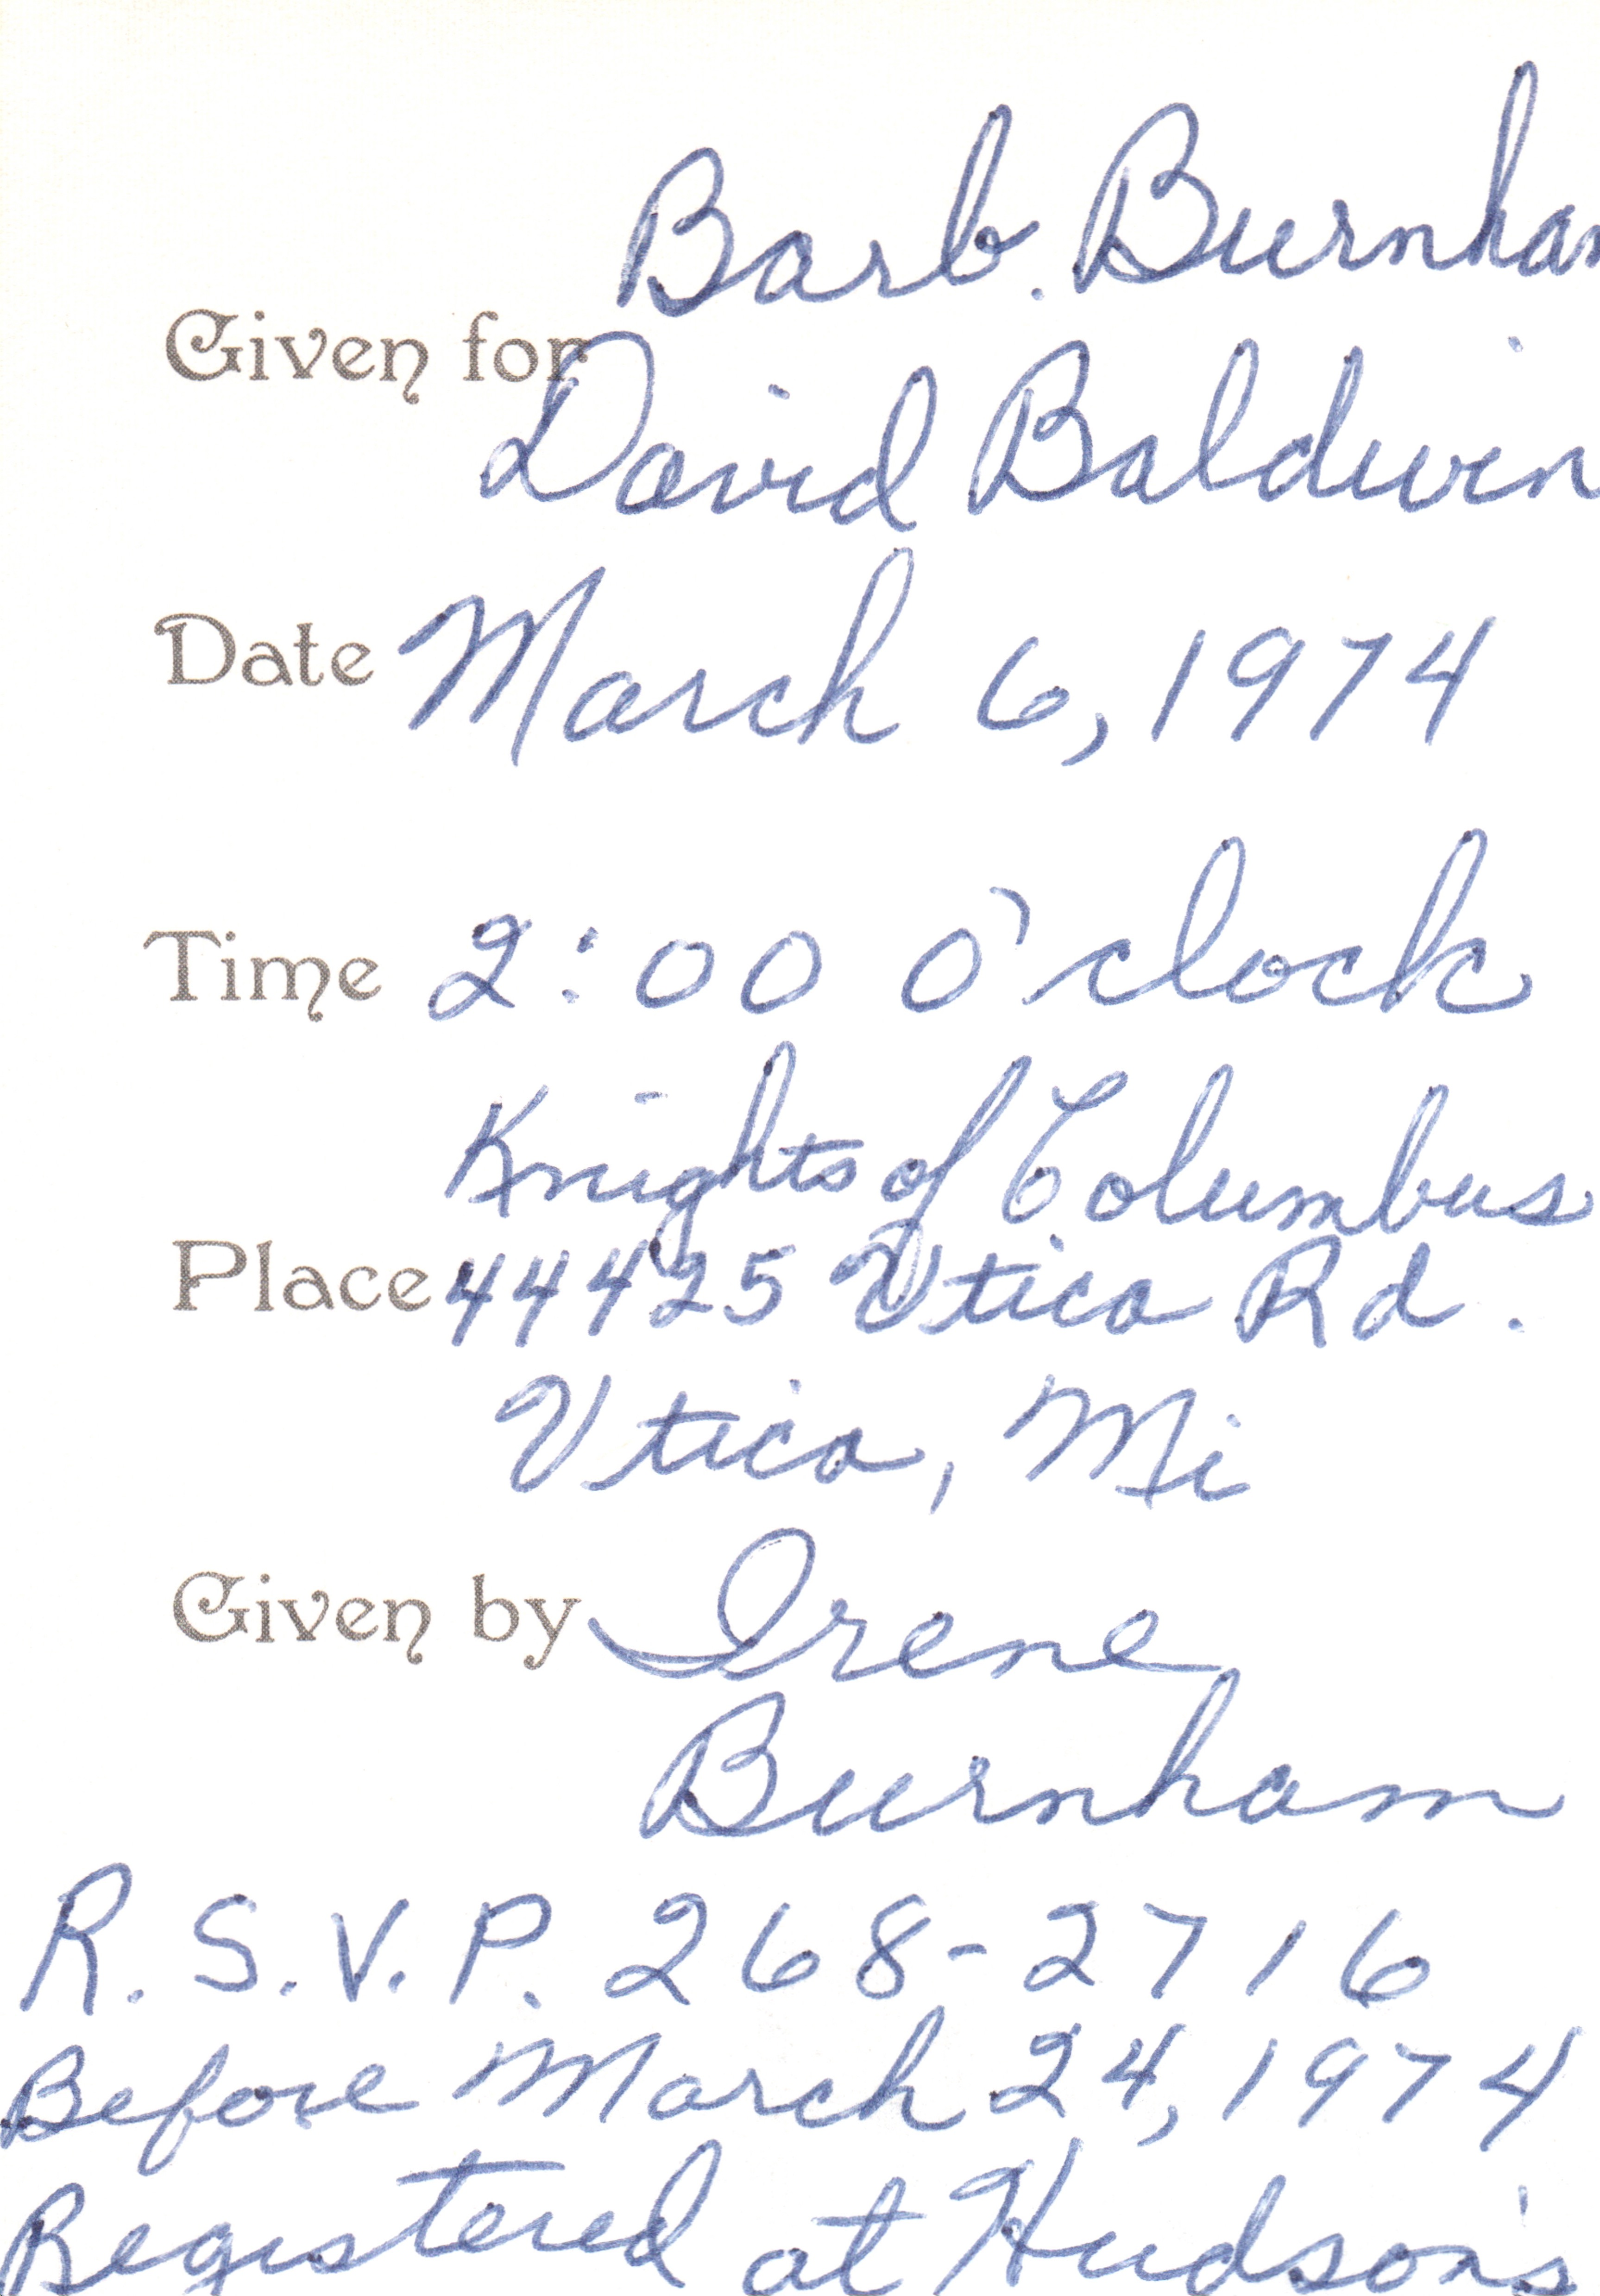 Barb. Burnham
Given for
David Baldwin
Date March 6, 1974
Time 2:00 O'clock
Knights of Columbus
Place 44425 Utica Rd.
Utica, Mi
Given by Irene
Burnham
R.S.V.P. 268-2716
Before March 24, 1974
Registered at Hudson's